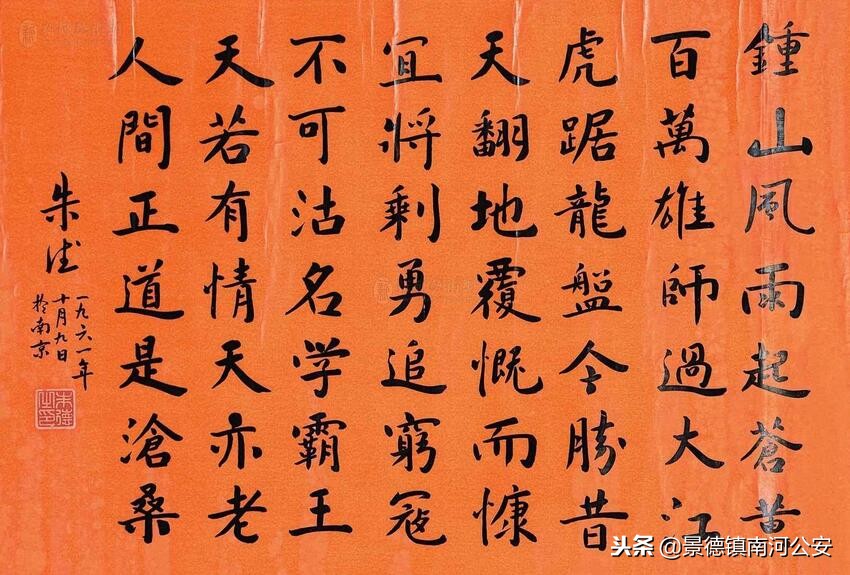 鍾山風雨起蒼黄
百萬雄師過大江
虎踞龍盤今勝昔
天翻地覆慨而慷
宜將剩勇追窮寇
不可沽名学霸王
天若有情天亦老
人間正道是滄桑
朱德
一九六一年
十月九日
於南京
朱德之印
头条 @景德镇南河公安